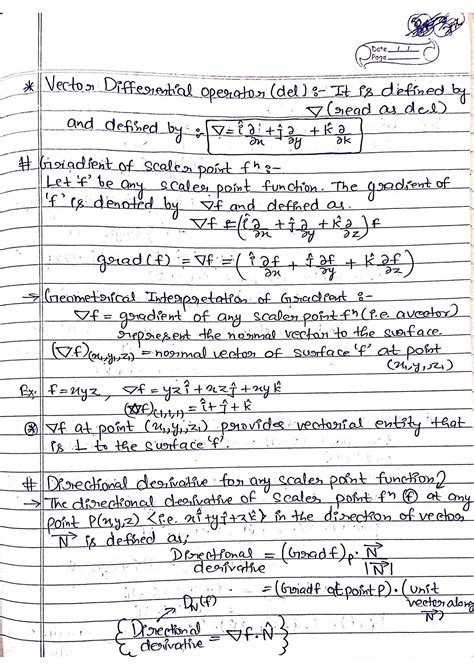 Date / /
Page
* Vector Differential operator (del) :- It is defined by
∇ (read as del)
and defined by :- ∇ = î ∂/∂x + ĵ ∂/∂y + k̂ ∂/∂k
# Gradient of scaler point fⁿ :-
Let 'f' be any scaler point function. The gradient of
'f' is denoted by ∇f and defined as.
∇f = (î ∂/∂x + ĵ ∂/∂y + k̂ ∂/∂z) f
grad(f) = ∇f = (î ∂f/∂x + ĵ ∂f/∂y + k̂ ∂f/∂z)
→ Geometrical Interpretation of Gradient :-
∇f = gradient of any scaler point fⁿ (i.e a vector)
represent the normal vector to the surface.
(∇f)(x₁,y₁,z₁) = normal vector of surface 'f' at point
(x₁,y₁,z₁)
Ex: f = xyz, ∇f = yz î + xz ĵ + xy k̂
(∇f)(1,1,1) = î + ĵ + k̂
* ∇f at point (x₁,y₁,z₁) provides vectorial entity that
is ⊥ to the surface 'f'.
# Directional derivative for any scaler point function :-
→ The directional derivative of scaler point fⁿ (f) at any
point P(x,y,z) <i.e. xî+yĵ+zk̂> in the direction of vector
N⃗ is defined as;
Directional derivative = (Grad f)ₚ . N⃗/|N⃗|
= (Grad f at point P) . (unit vector along
D_N(f)
{ Directional derivative = ∇f . N̂ }